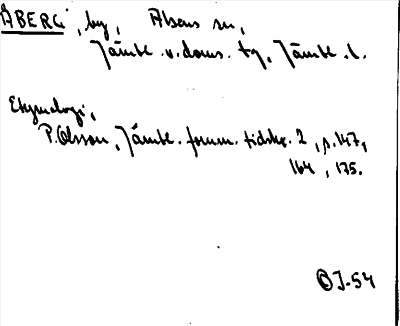 ÅBERG, by, Alsens sn,
Jämtl. v. doms. tg, Jämtl. l.
Etymologi,
P. Olsson, Jämtl. fornm. tidskr. 2, s. 147,
164, 175.
OJ-54